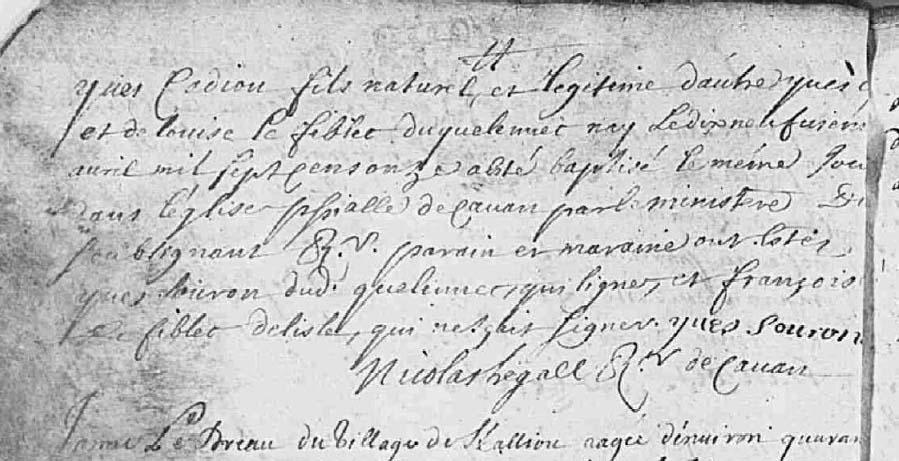 yues Cadiou fils naturel et legitime dautre yues
et de louise le fiblec duquelennec nay le dixneufuiesme
auril mil sept cens onze a esté baptisé le méme Jour
dans léglise pssialle de Cauan par le ministere Du
soubsignant Rr. parain et maraine ont estes
yues Souron dud. quelennec, qui signe, et françoise
Le fiblec delisle, qui ne sçait signer. yues Souron
Nicolas Legall Rr. de Cauan
Janne Le Breau du Village de aagée dénuiron quaran